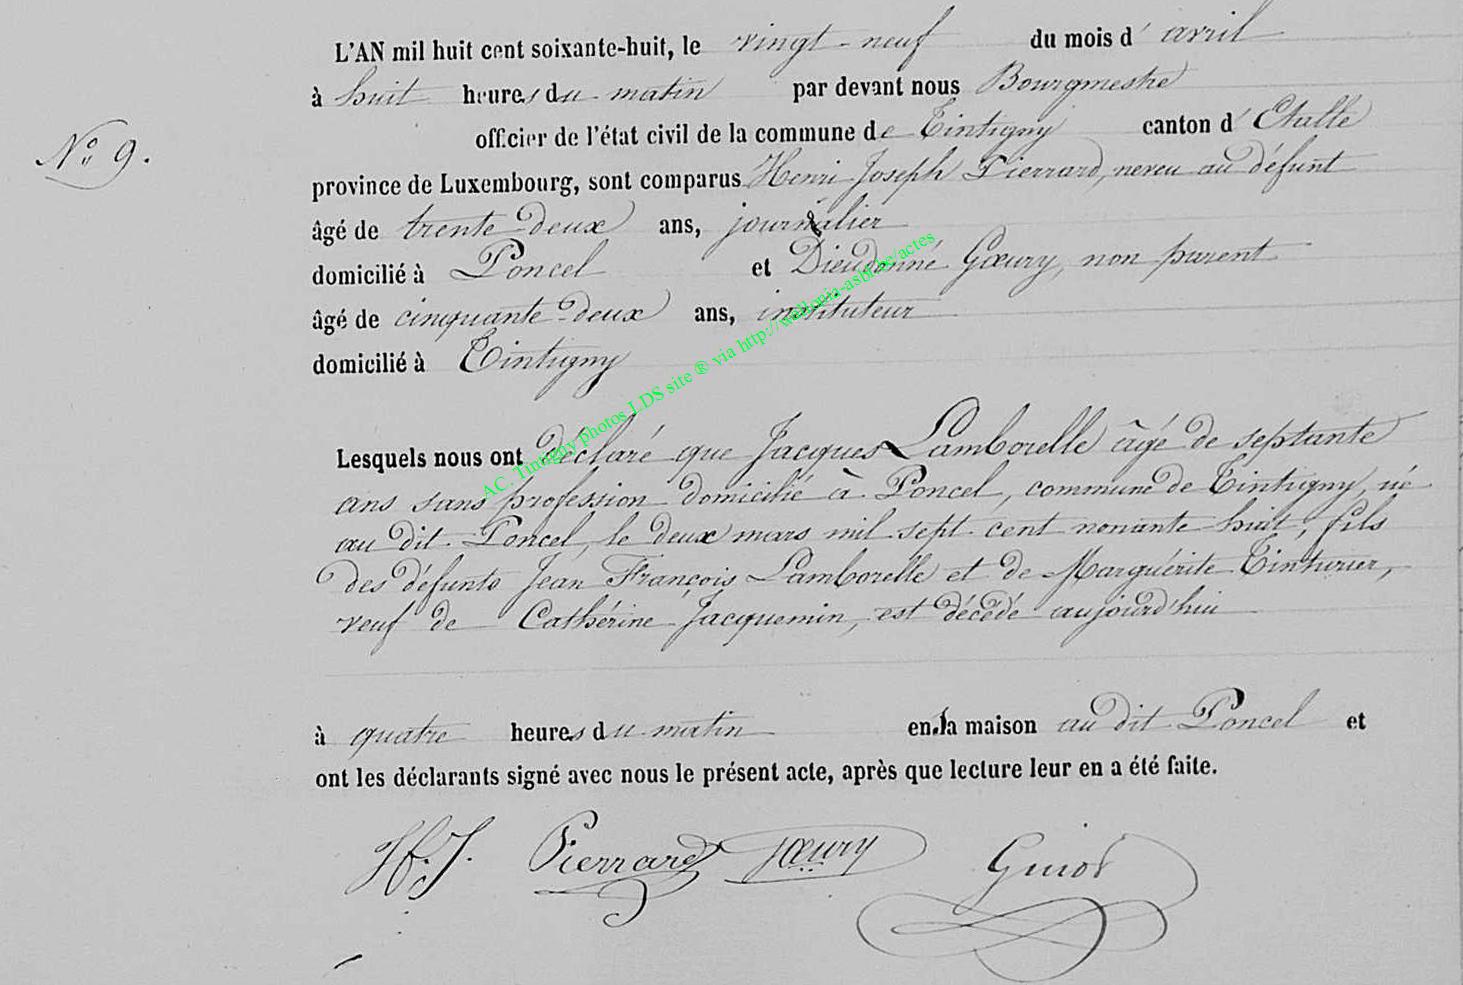 L'AN mil huit cent soixante-huit, le vingt-neuf du mois d'avril
à huit heures du matin par devant nous Bourgmestre
officier de l'état civil de la commune de Tintigny canton d'Etalle
N° 9.
province de Luxembourg, sont comparus Henri Joseph Pierrard, neveu au défunt
âgé de trente-deux ans, journalier
domicilié à Poncel et Dieudonné Gœury, non parent
âgé de cinquante-deux ans, instituteur
domicilié à Tintigny
AC. Tintigny photos LDS site ® via http://wallonia-asbl.be/actes
Lesquels nous ont déclaré que Jacques Lamborelle âgé de septante
ans sans profession domicilié à Poncel, commune de Tintigny, né
au dit Poncel, le deux mars mil sept cent nonante huit, fils
des défunts Jean François Lamborelle et de Marguérite Tinturier,
veuf de Cathérine Jacquemin, est décédé aujourd'hui
à quatre heures du matin en la maison au dit Poncel et
ont les déclarants signé avec nous le présent acte, après que lecture leur en a été faite.
H. J. Pierrard Gœury Guiot